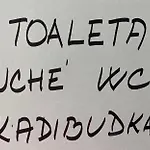 TOALETA
UCHÉ WC
KADIBUDKA